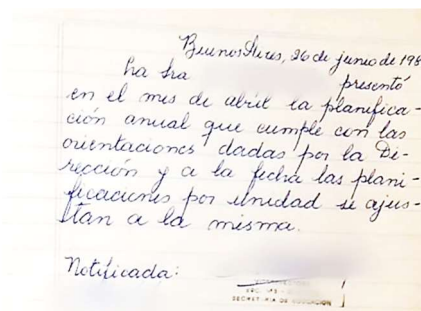 Buenos Aires, 26 de junio de 198
La Sra presentó
en el mes de abril la planifica-
ción anual que cumple con las
orientaciones dadas por la Di-
rección y a la fecha las plani-
ficaciones por unidad se ajus-
tan a la misma.
Notificada:
SECRETARIA DE EDUCACION